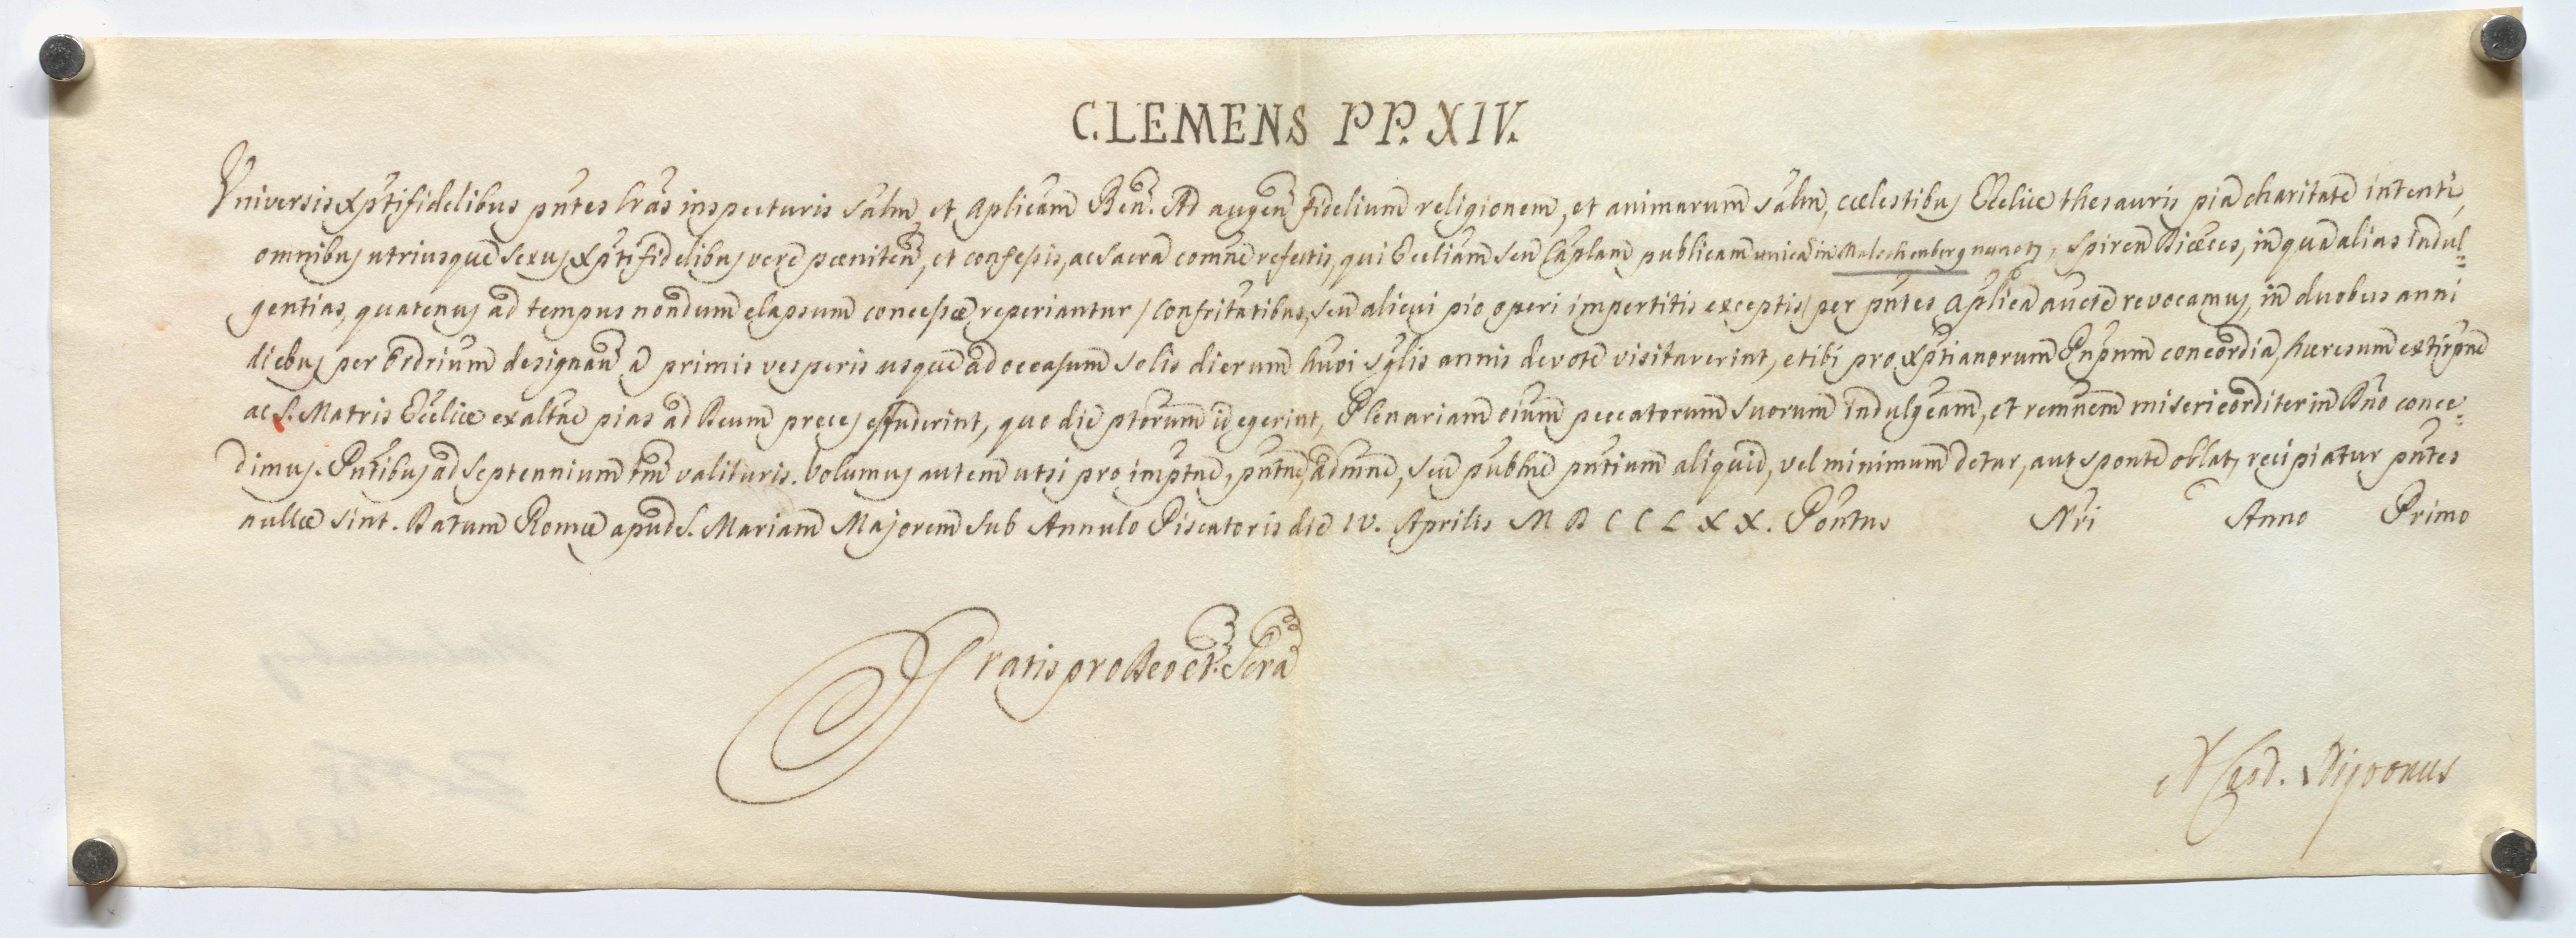 CLEMENS PP. XIV.
Universis Xp̃tifidelibus pñtes lr̃as inspecturis Sal̃m, et Ap̃licam̃ Ben̄. Ad augen̄ fidelium religionem, et animarum sal̃m, cœlestibus Ecc̃liæ thesauris pia charitate intenti,
omnibus utriusque sexus Xp̃tifidelibus vere pœniten̄, et confessis, ac Sacra com̃ne refectis, qui Eccl̃iam seu Cap̃lam publicam unicã in Malschenberg nuncup, Spiren̄ Diœces, in qua alias indul=
gentias, quatenus ad tempus nondum elapsum concessæ reperiantur / Confr̃itatibus, seu alicui pio operi impertitis exceptis / per pñtes Ap̃lica auct̃e revocamus, in duobus anni
diebus per Ord̃rium designan̄ a primis vesperis usque ad occasum Solis dierum hũoi s̃glis annis devote visitaverint, et ibi pro Xp̃tianorum Pñpum concordia, hæresum extirp̃ne
ac S. Matris Ecc̃liæ exalt̃ne pias ad Deum preces effuderint, quo die p̃torum id egerint, Plenariam oĩum peccatorum suorum indulg̃eam, et rem̃nem misericorditer in Dño conce=
dimus. Pñtibus ad Septennium tm̃ valituris. Volumus autem ut si pro imp̃tne, pñtne, adm̃ne, seu publ̃ne pñtium aliquid, vel minimum detur, aut sponte oblat, recipiatur pñtes
nullæ sint. Datum Romæ apud S. Mariam Majorem sub Annulo Piscatoris die IV. Aprilis MDCCLXX. Pont̃us Nr̃i Anno Primo
Gratis pro Deo et Scra